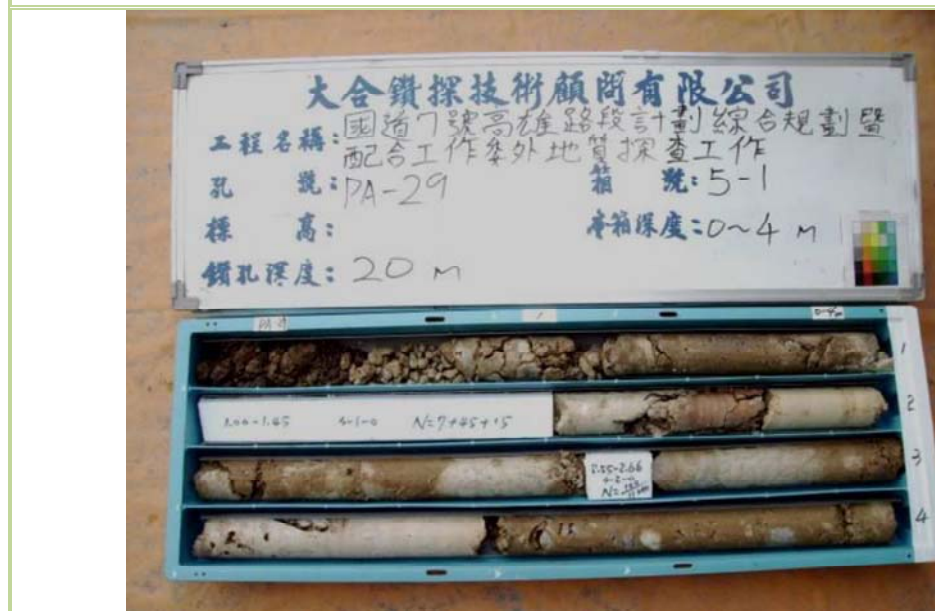 大合鑽探技術顧問有限公司
工程名稱：國道7號高雄路段計劃綜合規劃暨
配合工作委外地質探查工作
孔 號：PA-29 箱 號：5-1
標 高： 本箱深度：0~4 M
鑽孔深度：20 M
PA-29 1 0-4m
1
1.00-1.45 S-1-0 N=7+45+15
2
3
2.55-2.66
N=
4